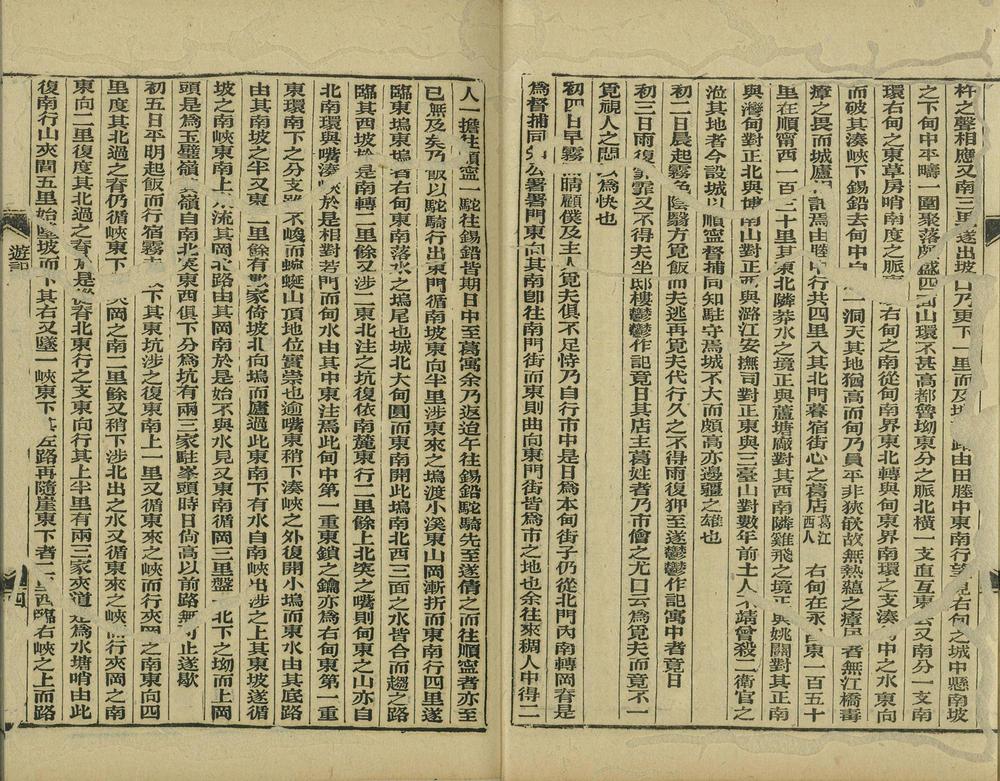 杵之聲相應又南三里遂出坡口乃更下一里而及坡路由田塍中東南行望見右甸之城中懸南坡
之下甸中平疇一圍聚落與盛四面山環不甚高都魯坳東分之脈北橫一支直互東去又南分一支南
環右甸之東草房哨南度之脈右甸之南從甸南界東北轉與甸東界南環之支湊甸中之水東向
而破其湊峽下錫鉛去甸中自一洞天其地猶高而甸乃員平非狹嵌故無熱蘊之瘴居者無江橋毒
瘴之畏而城廬相託焉由塍中行共四里入其北門暮宿街心之葛店葛江西人右甸在永昌東一百五十
里在順甯西一百三十里其東北隣莽水之境正與蘆塘廠對其西南隣雞飛之境正與姚關對其正南
與灣甸對正北與博南山對正西與潞江安撫司對正東與三臺山對數年前土人不靖曾殺二衛官之
涖其地者今設城以順寧督捕同知駐守焉城不大而頗高亦邊疆之雄也
初二日晨起霧色陰翳方覓飯而夫逃再覓夫代行久之不得雨復狎至遂鬱鬱作記寓中者竟日
初三日雨復霏霏又不得夫坐邸樓鬱鬱作記竟日其店主葛姓者乃市儈之尤口云為覓夫而竟不一
覓視人之悶以為快也
初四日早霧晴顧僕及主人覓夫俱不足恃乃自行市中是日為本甸街子仍從北門內南轉岡脊是
為督捕同知公署署門東向其南卽往南門街而東則曲向東門街皆為市之地也余往來稠人中得二
人一擔往順寧一駝往錫鉛皆期日中至葛寓余乃返迨午往錫鉛駝騎先至遂倩之而往順寧者亦至
已無及矣乃飯以駝騎行出東門循南坡東向半里涉東來之塢渡小溪東山岡漸折而東南行四里遂
臨東塢東塢者右甸東南落水之塢尾也城北大甸圓而東南開此塢南北西三面之水皆合而趨之路
臨其西坡於是南轉二里餘又涉二東北注之坑復依南麓東行二里餘上北突之嘴則甸東之山亦自
北南環與嘴湊峽於是相對若門而甸水由其中東注焉此甸中第一重東鎖之鑰亦為右甸東第一重
東環南下之分支雖不峻而蜿蜒山頂地位實崇也逾嘴東稍下湊峽之外復開小塢而東水由其底路
由其南坡之半又東二里餘有數家倚坡北向塢而廬過此東南下有水自南峽出涉之上其東坡遂循
坡之南峽東南上水流其岡北路由其岡南於是始不與水見又東南循岡三里盤北下之坳而上岡
頭是為玉璧嶺嶺自南北突東西俱下分為坑有兩三家駐峯頭時日尙高以前路無可止遂歇
初五日平明起飯而行宿霧未下其東坑涉之復東南上一里又循東來之峽而行夾岡之南東向四
里度其北過之脊仍循峽東下夾岡之南二里餘又稍下涉北出之水又循東來之峽而行夾岡之南
東向二里復度其北過之脊於是從脊北東行之支東向行其上半里有兩三家夾道是為水塘哨由此
復南行山夾間五里始墜坡而下其右又墜一峽東下左路再隨崖東下者二里西臨右峽之上而路
遊記
四